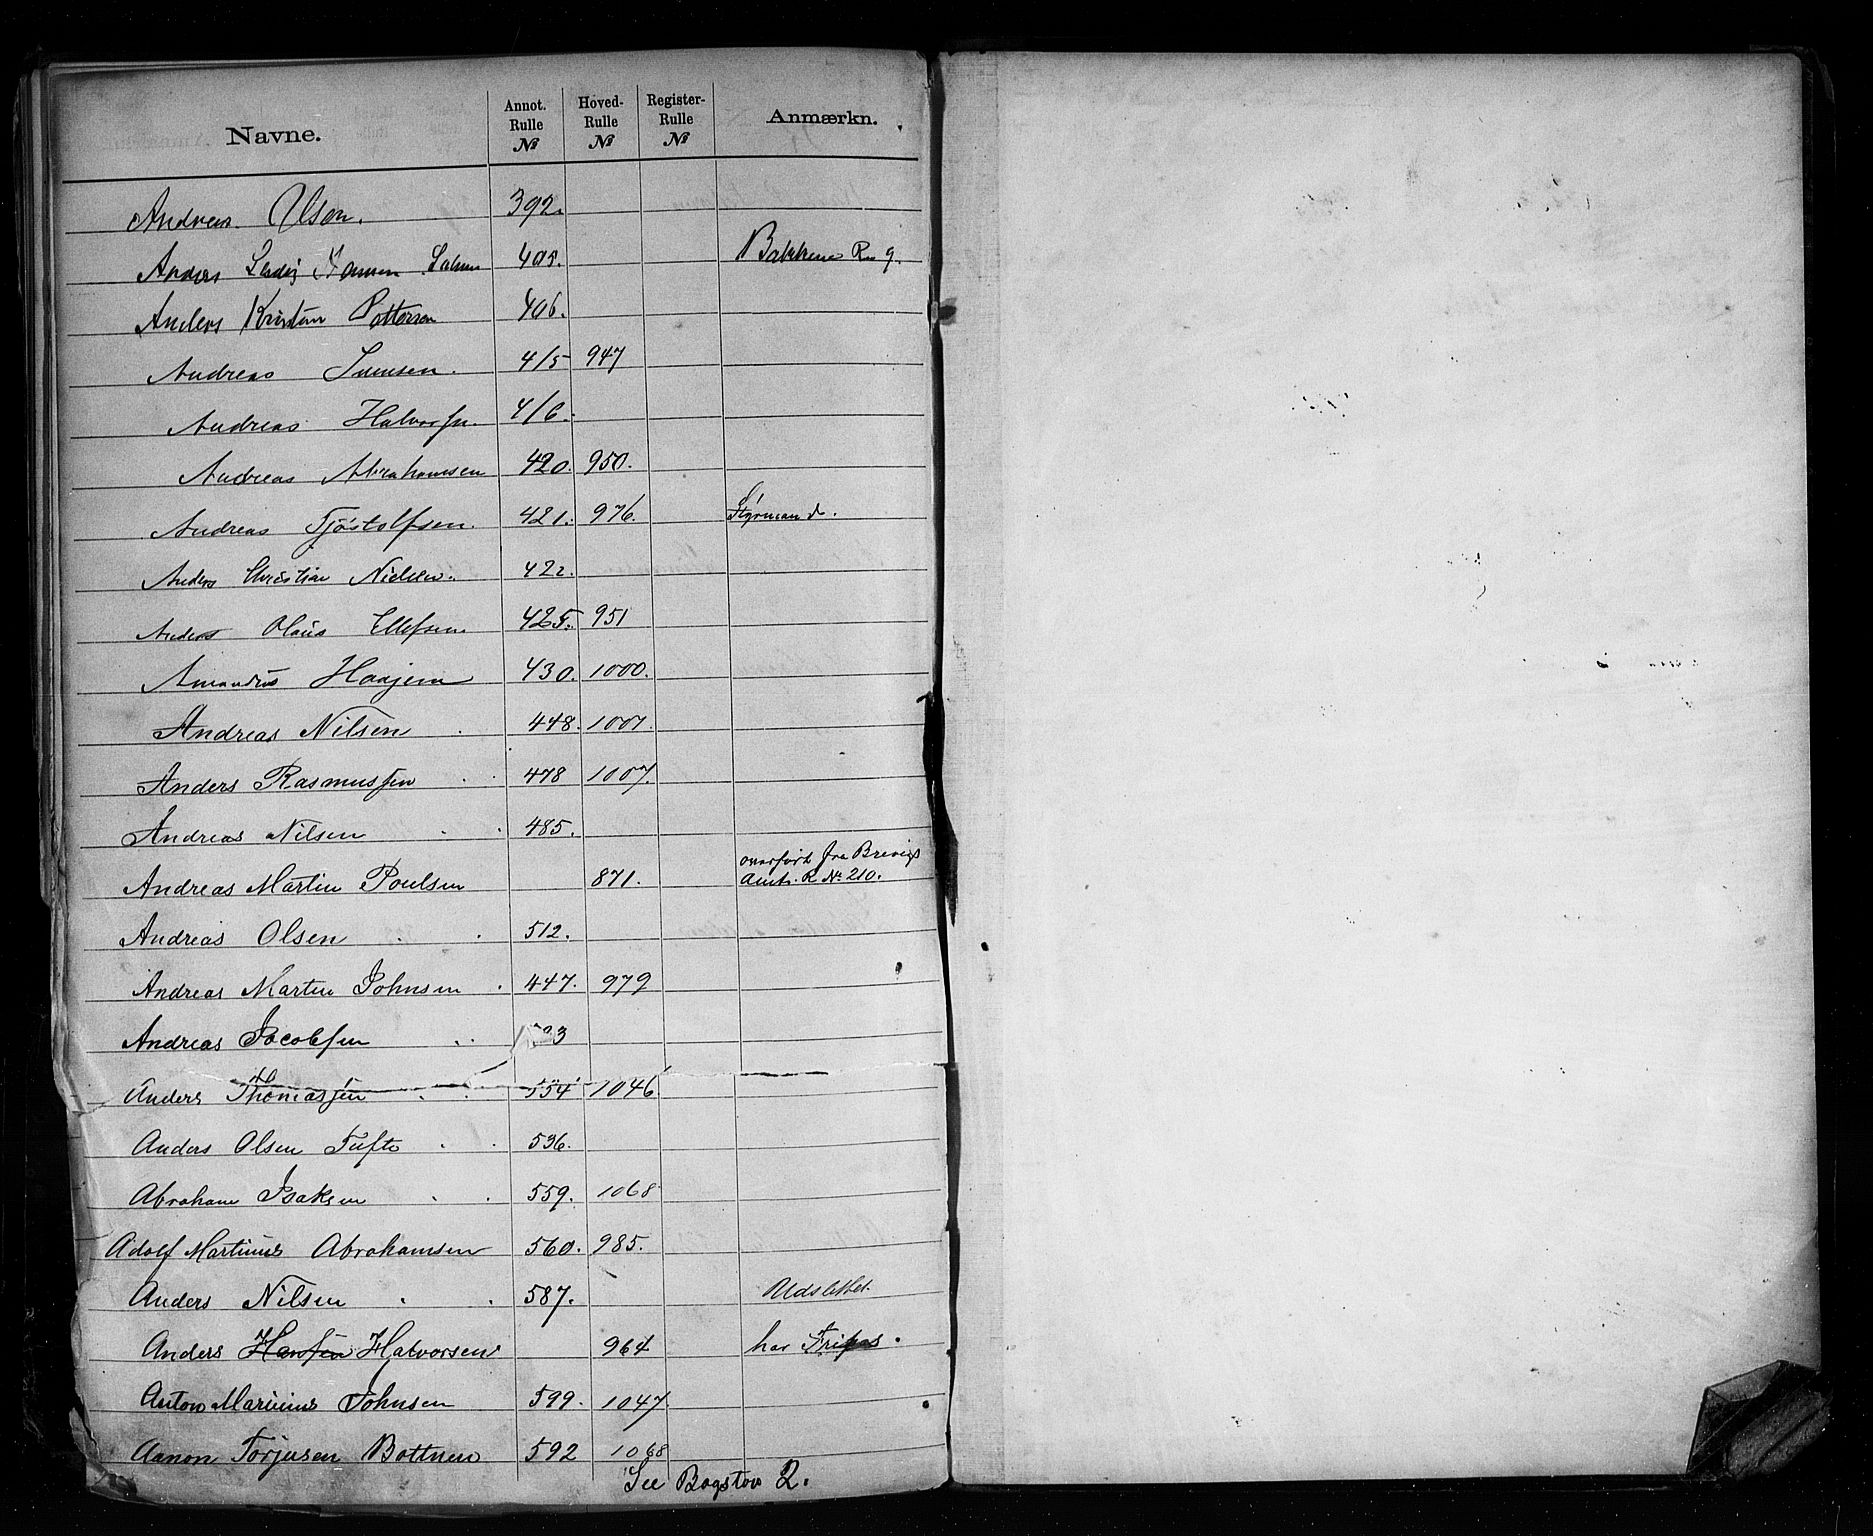 Navne. Annot. Rulle № Hoved- Rulle № Register- Rulle № Anmærkn.
Andreas Olsen. 392.
Anders Hansen 405. Bakkene R 9.
Anders Kristian Pettersen 406.
Andreas Ivensen. 415 947
Andreas Halvorsen. 416.
Andreas Abrahamsen 420. 950.
Andreas Tjöstolfsen. 421. 976. Styrmand.
Anders Christian Nielsen. 422.
Anders Olaus Ellefsen 425. 951
Amandus Haajem 430. 1000.
Andreas Nilsen 448. 1001.
Anders Rasmussen 478 1007.
Andreas Nilsen 485.
Andreas Martin Poulsen 871. overført fra Brevigs
Annt. R № 210.
Andreas Olsen 512.
Andreas Martin Johnsen 447. 979
Andreas Jacobsen
Anders Thomassen 554 1046
Anders Olsen Tufte 536.
Abraham Isaksen 559. 1068
Adolf Martinus Abrahamsen 560. 985.
Anders Nilsen 587. Udslettet.
Anders Hansen Halvorsen 964 har Fripas.
Anton Marinius Johnsen 599. 1047
Aanon Torjusen Bottnen 592 1068
See Bogstav 2.